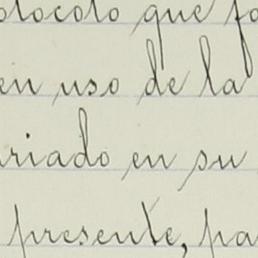 otocolo que fo
en uso de la
ariado en su
presente, pa